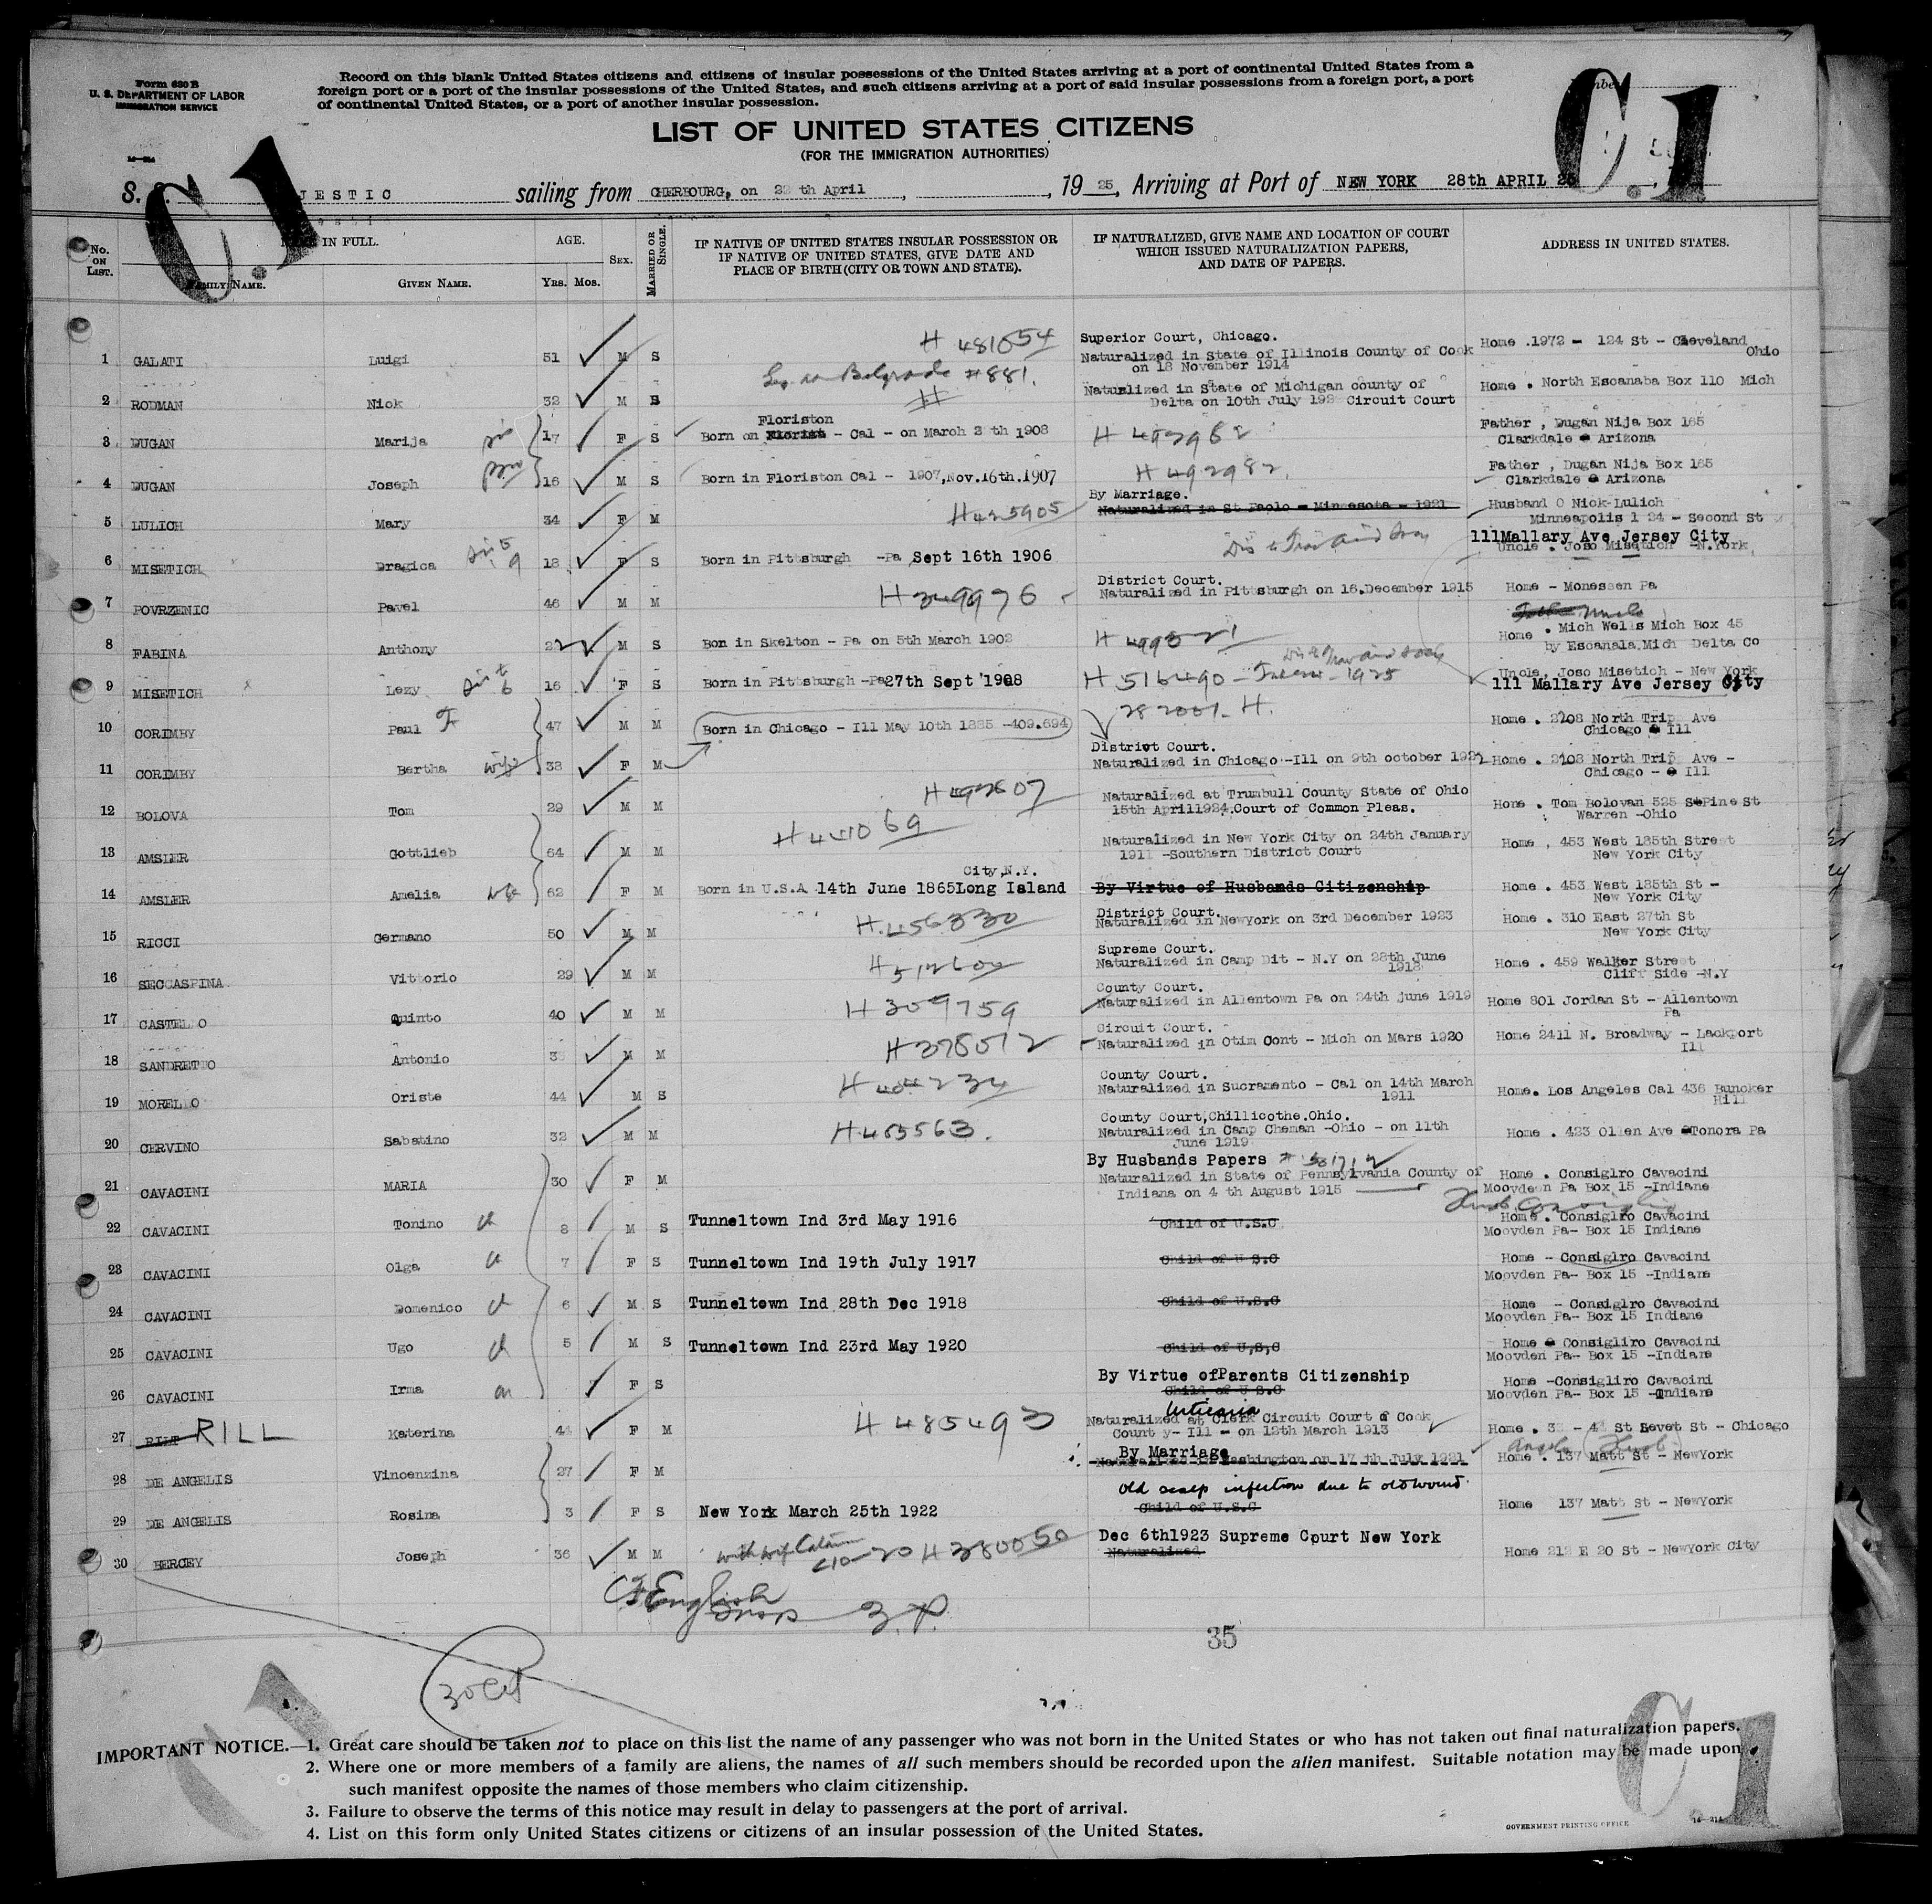 Form 630 B
U. S. DEPARTMENT OF LABOR
IMMIGRATION SERVICE
Record on this blank United States citizens and citizens of insular possessions of the United States arriving at a port of continental United States from a
foreign port or a port of the insular possessions of the United States, and such citizens arriving at a port of said insular possessions from a foreign port, a port
of continental United States, or a port of another insular possession.
C.1
C.1
LIST OF UNITED STATES CITIZENS
(FOR THE IMMIGRATION AUTHORITIES)
S. JESTIC sailing from CHERBOURG, on 22 th April, 19 25, Arriving at Port of NEW YORK 28th APRIL 25
No. ON LIST. IN FULL. AGE. SEX. MARRIED OR SINGLE. IF NATIVE OF UNITED STATES INSULAR POSSESSION OR IF NATIVE OF UNITED STATES, GIVE DATE AND PLACE OF BIRTH (CITY OR TOWN AND STATE). IF NATURALIZED, GIVE NAME AND LOCATION OF COURT WHICH ISSUED NATURALIZATION PAPERS, AND DATE OF PAPERS. ADDRESS IN UNITED STATES.
FAMILY NAME. GIVEN NAME. YRS. MOS.
H 481654 Superior Court, Chicago.
1 GALATI Luigi 51 M S Naturalized in State of Illinois County of Cook Home .1972 - 124 St - Cleveland Ohio
on 18 November 1914
Belgrade #881.
2 RODMAN Nick 32 M S Naturalized in State of Michigan county of Home . North Escanaba Box 110 Mich
Delta on 10th July 192 Circuit Court
Floriston
3 DUGAN Marija sis 17 F S Born on Florist - Cal - on March 2 th 1908 H 492982 Father , Dugan Nija Box 165
Clarkdale Arizona
4 DUGAN Joseph bro 16 M S Born in Floriston Cal - 1907,Nov.16th.1907 H 492982. Father , Dugan Nija Box 165
Clarkdale Arizona
By Marriage.
5 LULICH Mary 34 F M H425905 Naturalized in St Paolo - Minesota - 1921 Husband O Nick-Lulich
Minneapolis 1 24 - Second St
111Mallary Ave Jersey City
6 MISETICH Dragica 18 F S Born in Pittsburgh -Pa Sept 16th 1906 Uncle . Joso Misetich -N.York
District Court.
7 POVRZENIC Pavel 46 M M H349976 Naturalized in Pittsburgh on 16.December 1915 Home - Monessen Pa
8 FABINA Anthony 22 M S Bon in Skelton - Pa on 5th March 1902 Home . Mich Wells Mich Box 45
by Escanala,Mich Delta Co
9 MISETICH Lezy 16 F S Born in Pittsburgh -Pa27th Sept '1908 H 516490 1925 Uncle, Joso Misetich - New York
111 Mallary Ave Jersey City
10 CORIMBY Paul 47 M M Born in Chicago - Ill May 10th 1885 -409.694 Home . 2108 North Trip Ave
Chicago Ill
District Court.
11 CORIMBY Bertha wife 38 F M Naturalized in Chicago -Ill on 9th october 1922 Home . 2108 North Trip Ave -
Chicago - Ill
12 BOLOVA Tom 29 M M H492607 Naturalized at Trumbull County State of Ohio Home . Tom Bolovan 525 S Pine St
15th April1924,Court of Common Pleas. Warren -Ohio
13 AMSLER Gottlieb 64 M M H441069 Naturalized in New York City on 24th January Home , 453 West 135th Street
1911 -Southern District Court New York City
City,N.Y.
14 AMSLER Amelia wife 62 F M Born in U.S.A 14th June 1865Long Island By Virtue of Husbands Citizenship Home . 453 West 135th St -
New York City
District Court.
15 RICCI Germano 50 M M H.456330 Naturalized in NewYork on 3rd December 1923 Home . 310 East 27th St
New York City
Supreme Court.
16 SECCASPINA Vittorio 29 M M Naturalized in Camp Dit - N.Y on 28th June Home . 459 Walker Street
1918 Cliff Side -N.Y
County Court.
17 CASTEL O Quinto 40 M M H309759 Naturalized in Allentown Pa on 24th june 1919 Home 801 Jordan St - Allentown
Pa
Circuit Court.
18 SANDRETTO Antonio 3 M M H378012 Naturalized in Otim Cont - Mich on Mars 1920 Home 2411 N. Broadway - Lackport
Ill
County Court.
19 MOREL O Oriste 44 M S H404234 Naturalized in Sucramento - Cal on 14th March Home. Los Angeles Cal 436 Buncker
1911 Hill
County Court,Chillicothe.Ohio.
20 CERVINO Sabatino 32 M M H455563. Naturalized in Camp Cheman -Ohio - on 11th Home . 423 Ollen Ave Tonora Pa
June 1919
By Husbands Papers
21 CAVACINI MARIA 30 F M Naturalized in State of Pennsylvania County of Home . Consiglro Cavacini
Indiana on 4 th August 1915 Moovdeen Pa Box 15 -Indiane
22 CAVACINI Tonino ch 8 M S Tunneltown Ind 3rd May 1916 Child of U.S.C Home . Consiglro Cavacini
Moovden Pa- Box 15 Indiane
23 CAVACINI Olga ch 7 F S Tunneltown Ind 19th July 1917 Child of U S.C Home - Consiglro Cavacini
Moovden Pa- Box 15 -Indiane
24 CAVACINI Domenico ch 6 M S Tunneltown Ind 28th Dec 1918 Child of U.S.C Home - Consiglro Cavacini
Moovden Pa- Box 15 Indiane
25 CAVACINI Ugo ch 5 M S Tunneltown Ind 23rd May 1920 Child of U,S,C Home Consigliro Cavacini
Moovden Pa- Box 15 -Indiane
By Virtue ofParents Citizenship
26 CAVACINI Irma F S Child of U S.C Home -Consigliro Cavacini
Moovden Pa- Box 15 -Indiane
Urticaria
27 RILL Katerina 44 F M H 485493 Naturalized at Clerk Circuit Court of Cook Home . St Levet St - Chicago
Count y- Ill - on 12th March 1913
By Marriage
28 DE ANGELIS Vincenzina 27 F M Washington on 17 th July 1921 Home . 137 Matt St - NewYork
old scalp infection due to old wound
29 DE ANGELIS Rosina 3 F S New York March 25th 1922 Child of U.S.C Home 137 Matt St - NewYork
Dec 6th1923 Supreme Court New York
30 HERCEY Joseph 36 M M H380050 Naturalized Home 212 E 20 St - NewYork City
English
35
30 Cit
IMPORTANT NOTICE.—1. Great care should be taken not to place on this list the name of any passenger who was not born in the United States or who has not taken out final naturalization papers.
2. Where one or more members of a family are aliens, the names of all such members should be recorded upon the alien manifest. Suitable notation may be made upon
such manifest opposite the names of those members who claim citizenship.
3. Failure to observe the terms of this notice may result in delay to passengers at the port of arrival.
4. List on this form only United States citizens or citizens of an insular possession of the United States.
GOVERNMENT PRINTING OFFICE
C1